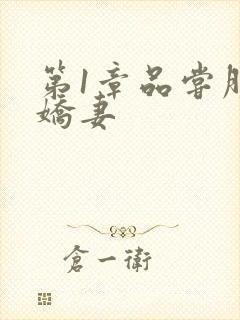 第1章品尝胴
娇妻
仓一衛